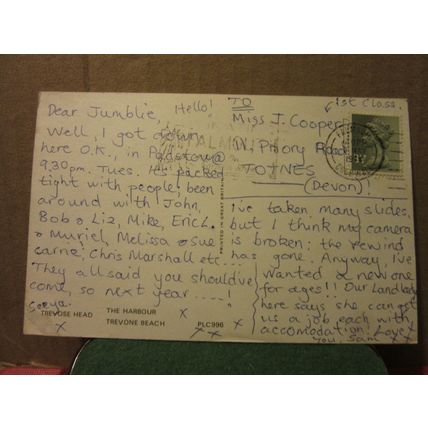 Dear Jumblie, Hello!
Well, I got down
here O.K., in Padstow @
9.30pm. Tues. It's packed
tight with people, been
around with John,
Bob & Liz, Mike, Eric L.
& Muriel, Melissa & Sue
came, Chris Marshall etc...
They all said you should've
come, so next year ....!
Seeya.
x
TO
1st Class.
Miss J. Cooper
11, Priory Road
TOTNES
(Devon)
I've taken many slides,
but I think my camera
is broken; the rewind
has gone. Anyway I've
wanted a new one
for ages!! Our Landlady
here says she can get
us a job each with
accomodation! Love
You, Sam x
PRINTED IN GREAT BRITAIN
TREVOSE HEAD THE HARBOUR
TREVONE BEACH PLC996
x x x x